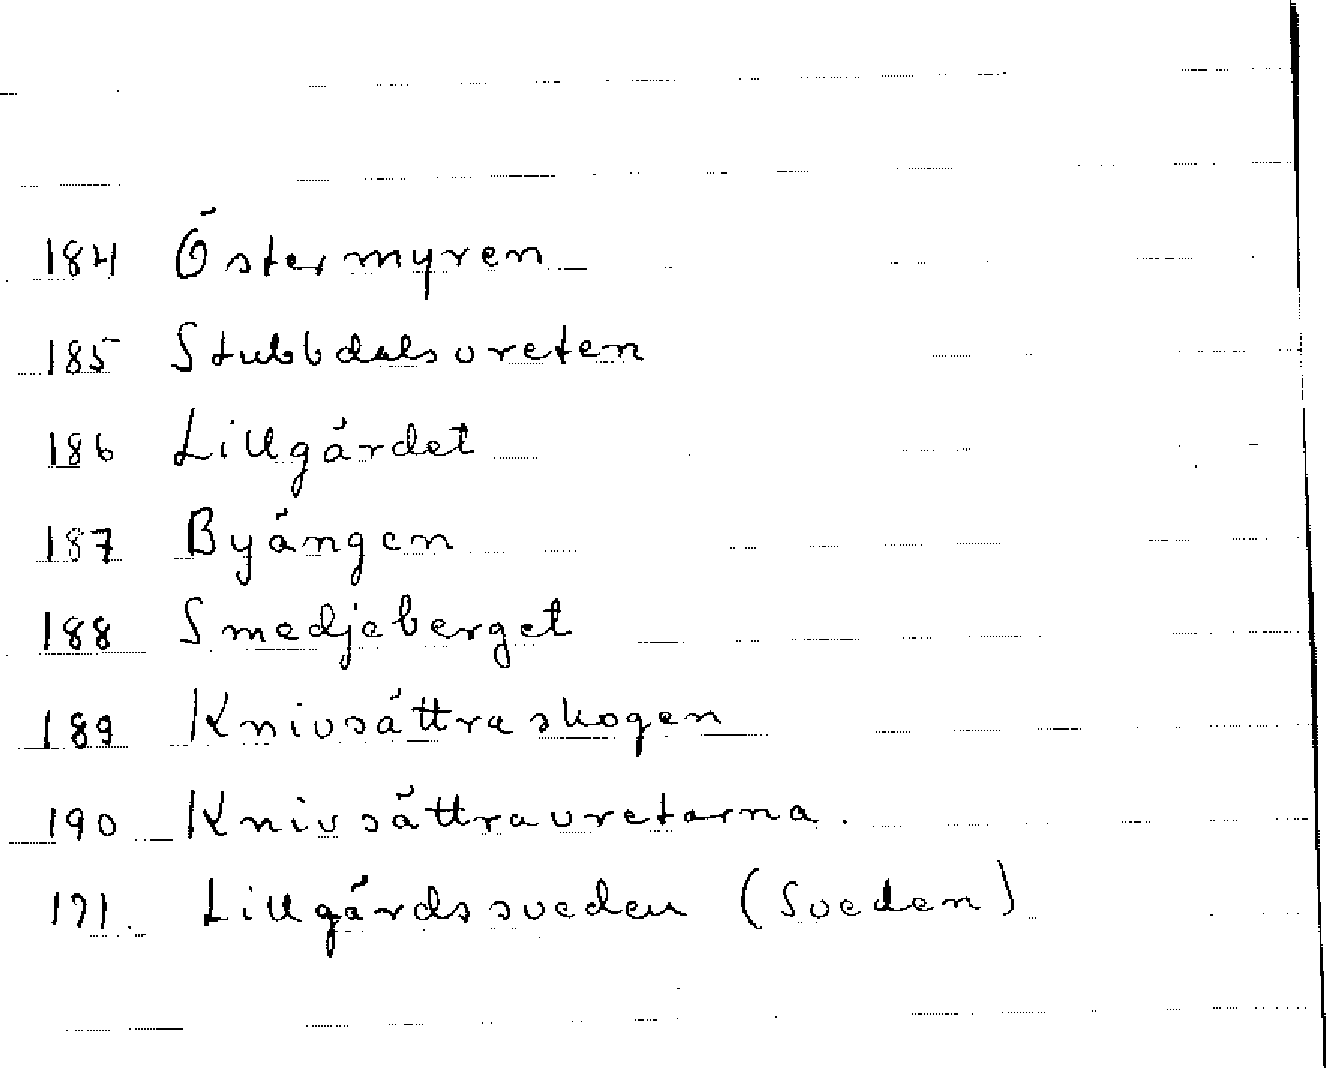 184 Östermyren
185 Stubbdalsvreten
186 Lillgärdet
187 Byängen
188 Smedjeberget
189 Knivsättraskogen
190 Knivsättravretarna.
191. Lillgärdssveden (Sveden)